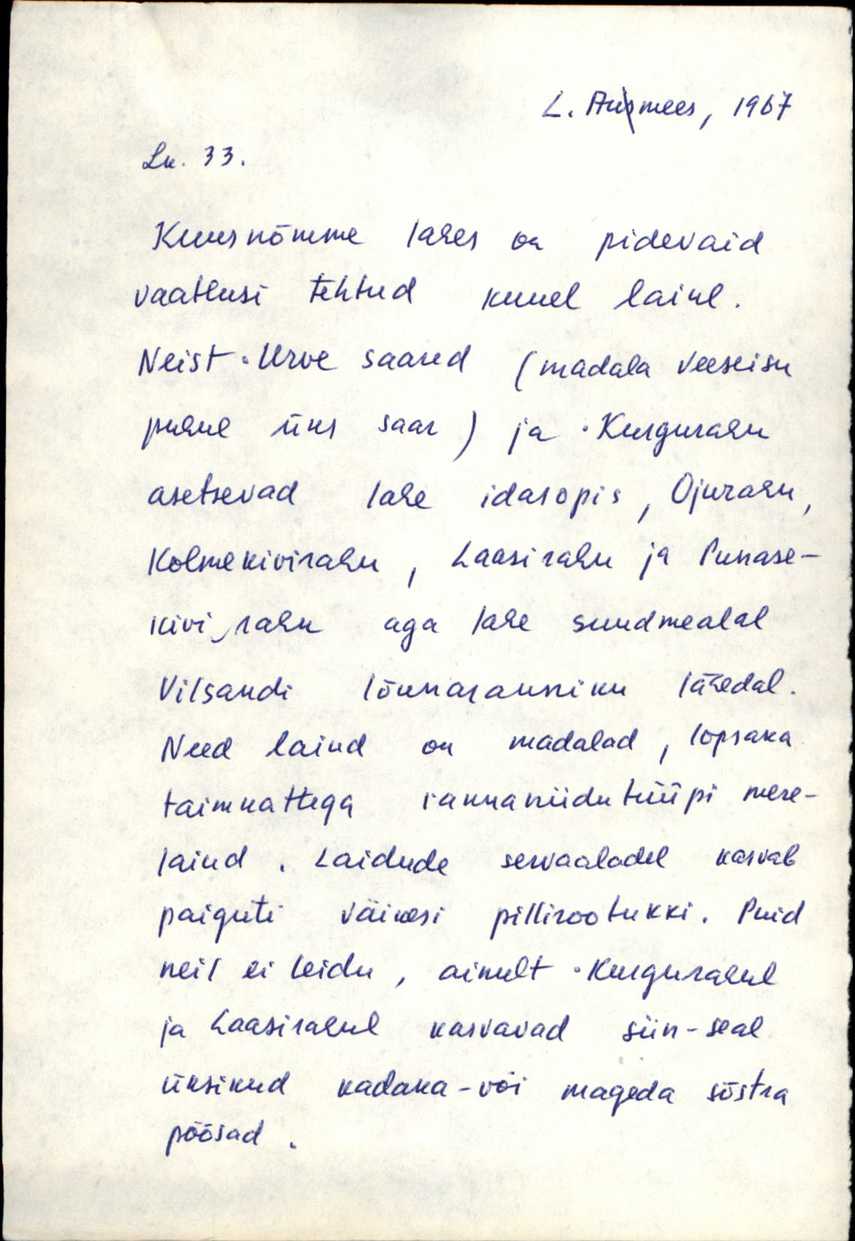 L. Aumees, 1967
Lk. 33.
Kuusnõmme lahes on pidevaid
vaatlusi tehtud kuuel laiul.
Neist Urve saared (madala veeseisu
puhul üks saar) ja Kurgurahu
asetsevad lahe idasopis, Ojurahu,
Kolmekivirahu, Laasirahu ja Punase-
kivirahu aga lahe suudmealal
Vilsandi lõunaranniku lähedal.
Need laiud on madalad, lopsaka
taimkattega rannaniidutüüpi mere-
laiud. Laidude servaaladel kasvab
paiguti väikesi pillirootukki. Puid
neil ei leidu, ainult Kurgurahul
ja Laasirahul kasvavad siin-seal
üksikud kadaka-või mageda sõstra
põõsad.